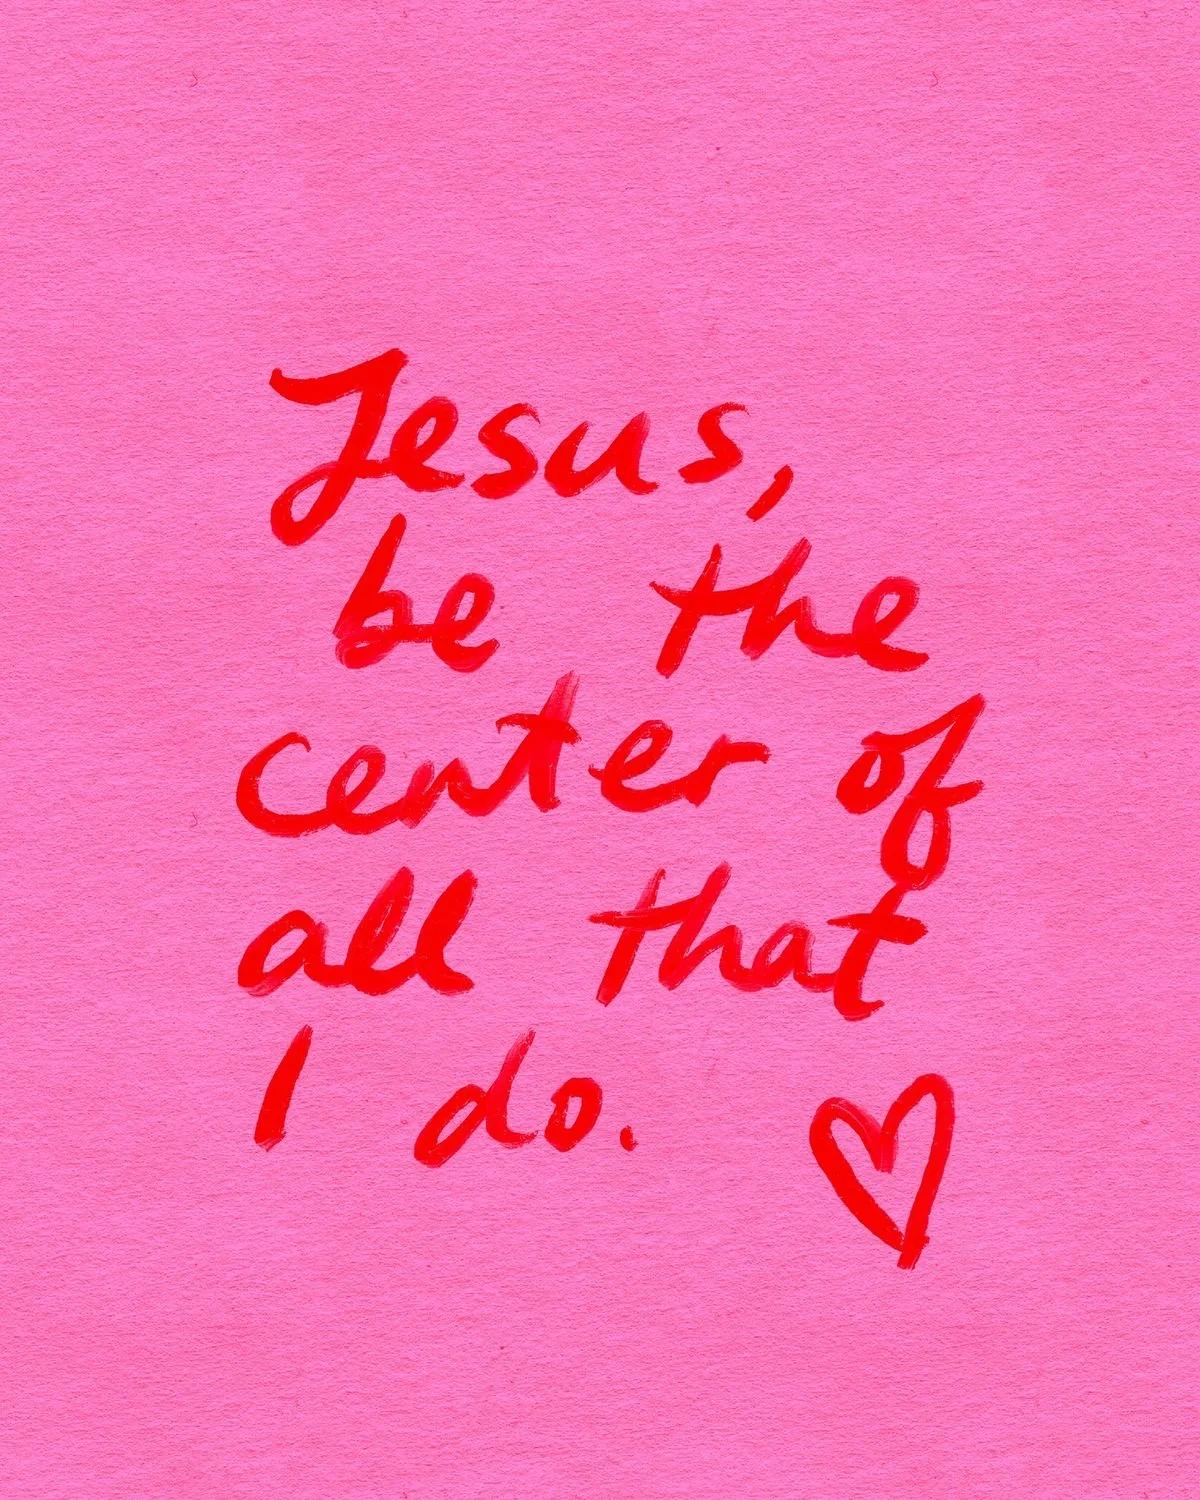 Jesus,
be the
center of
all that
I do.